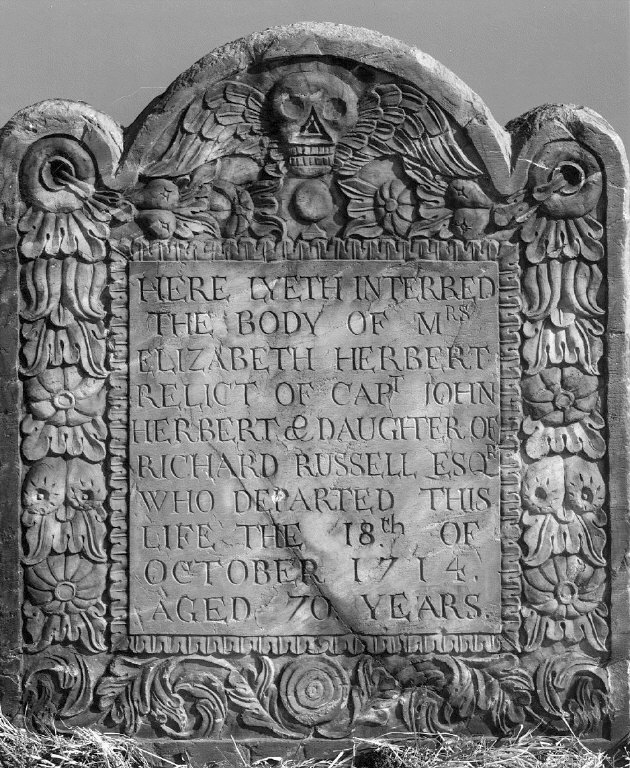 HERE LYETH INTERRED
THE BODY OF MRS
ELIZABETH HERBERT
RELICT OF CAPT JOHN
HERBERT & DAUGHTER OF
RICHARD RUSSELL ESQR
WHO DEPARTED THIS
LIFE THE 18th OF
OCTOBER 1714.
AGED 70 YEARS.